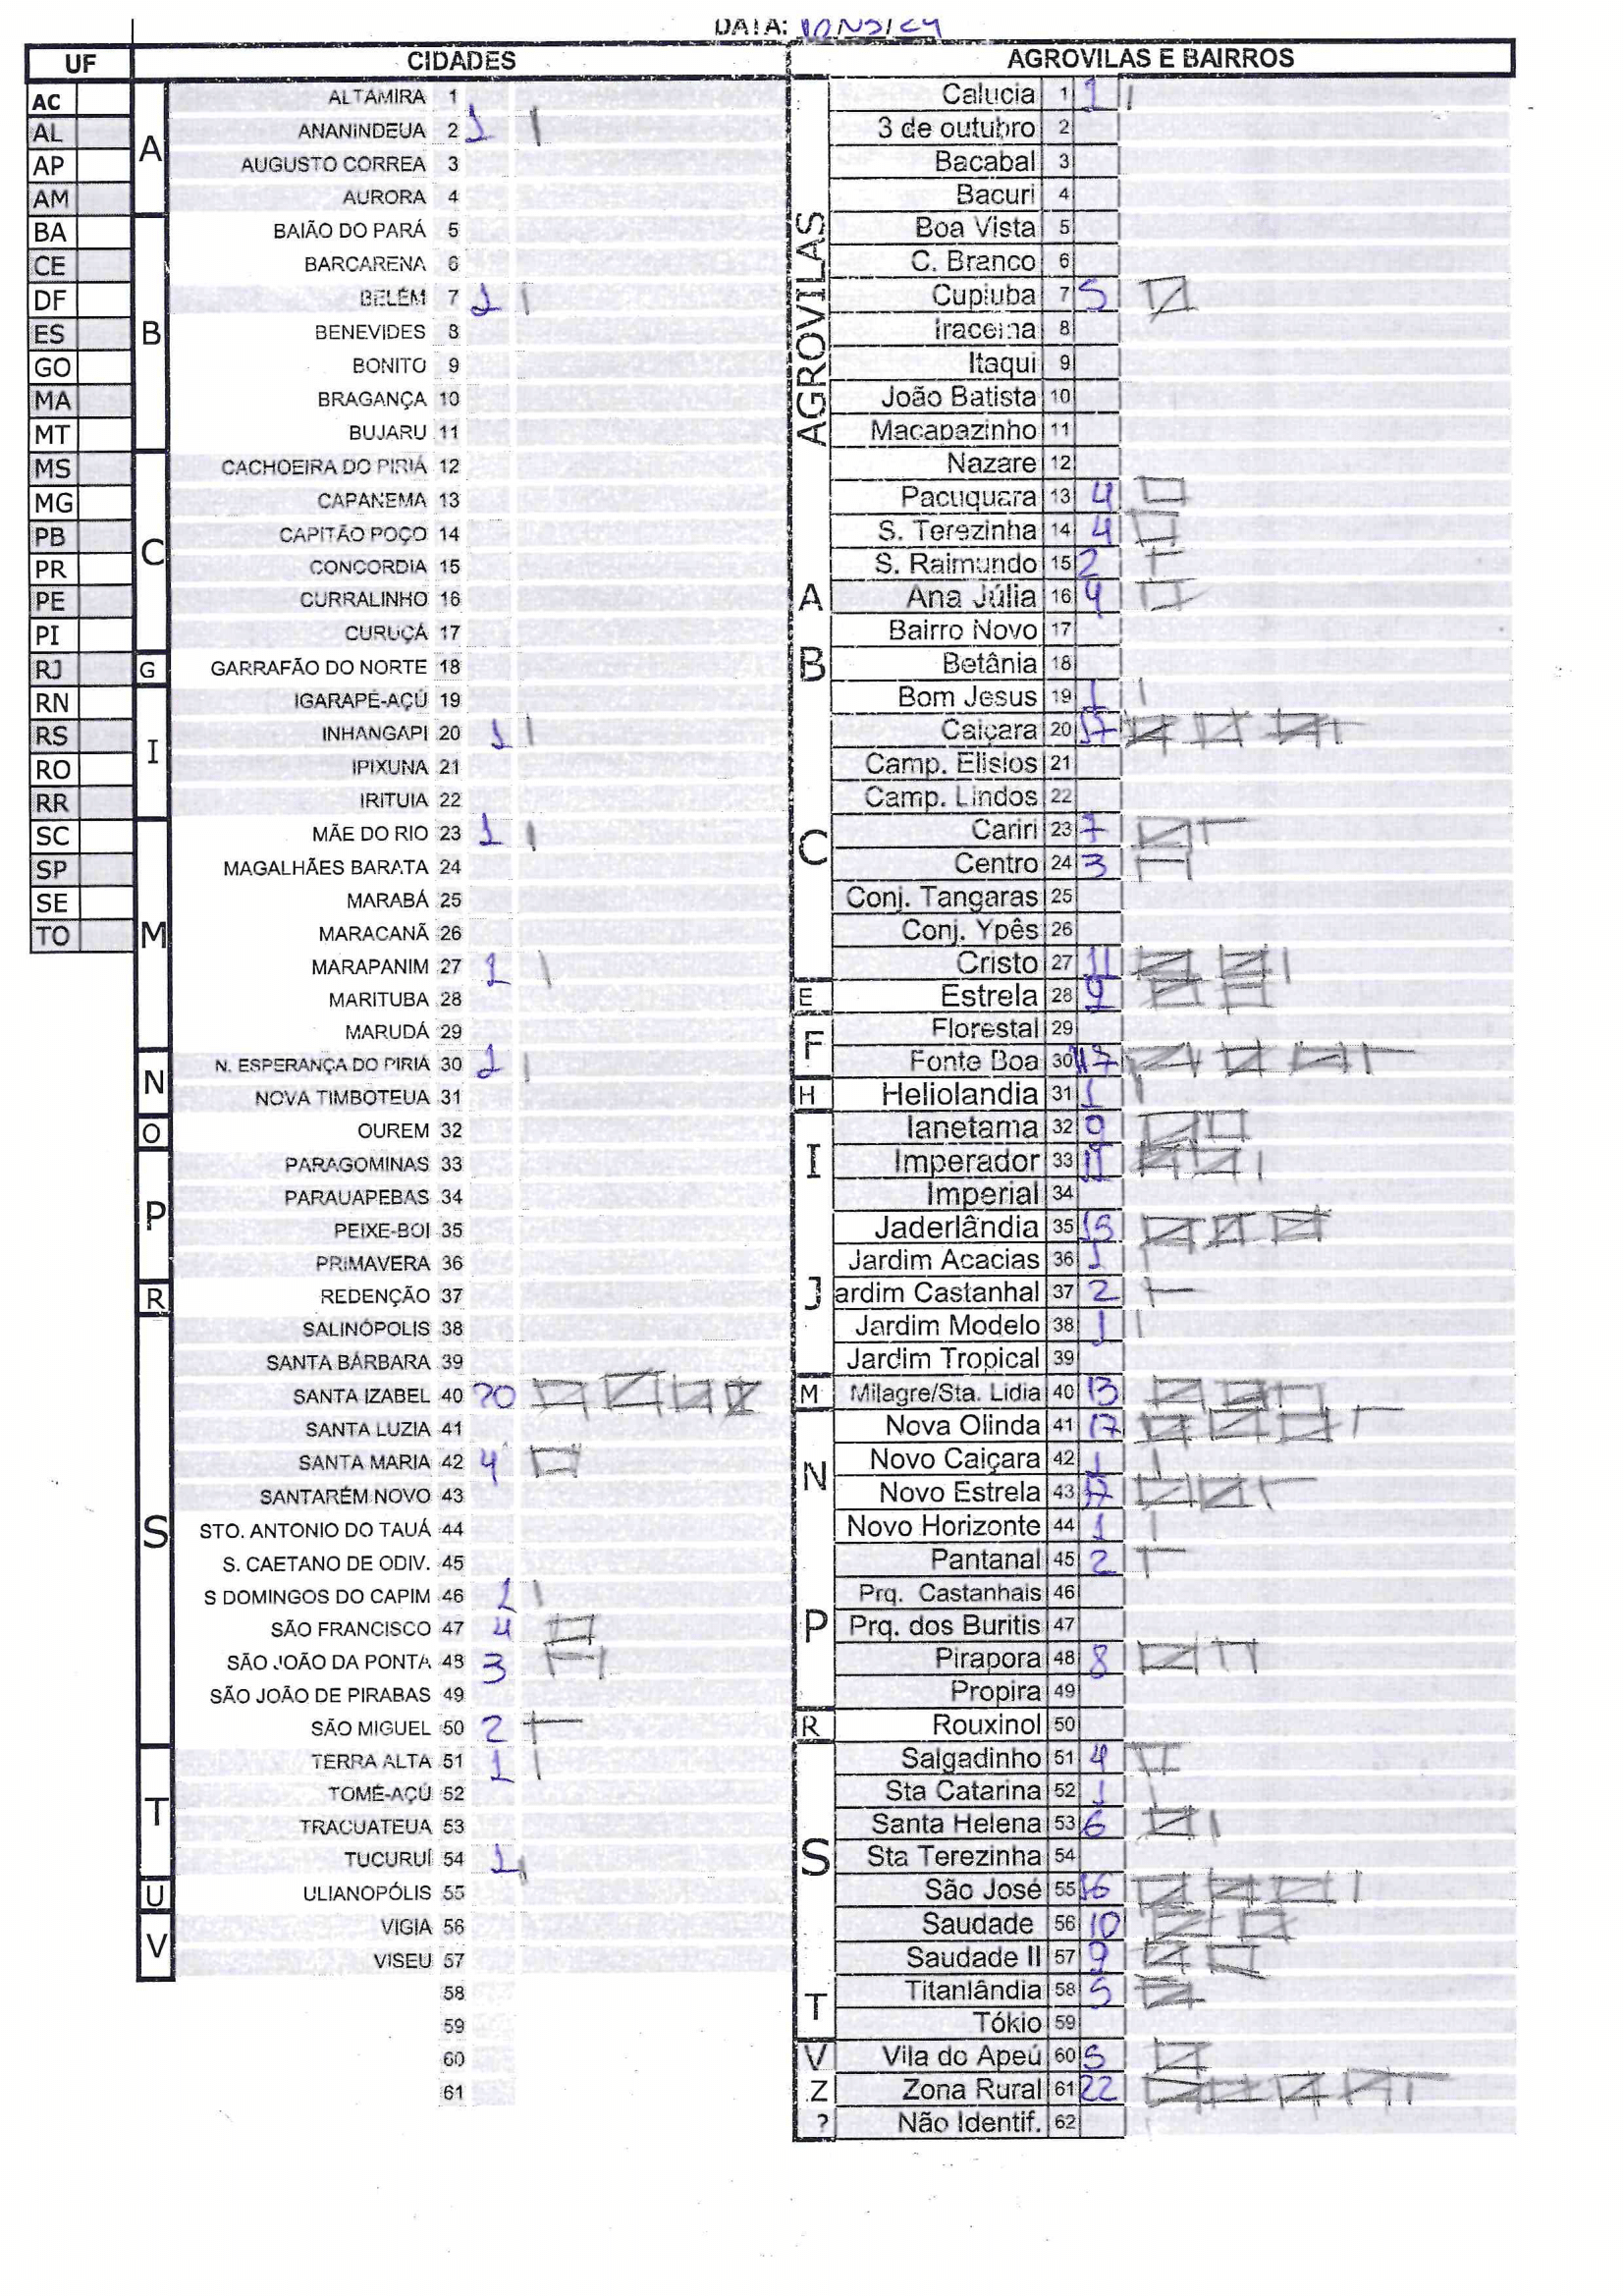 DATA: 10/05/24
UF CIDADES AGROVILAS E BAIRROS
AC
AL
AP
AM
BA
CE
DF
ES
GO
MA
MT
MS
MG
PB
PR
PE
PI
RJ
RN
RS
RO
RR
SC
SP
SE
TO
A
ALTAMIRA 1
ANANINDEUA 2 1
AUGUSTO CORREA 3
AURORA 4
B
BAIÃO DO PARÁ 5
BARCARENA 6
BELÉM 7 1
BENEVIDES 8
BONITO 9
BRAGANÇA 10
BUJARU 11
C
CACHOEIRA DO PIRIÁ 12
CAPANEMA 13
CAPITÃO POÇO 14
CONCORDIA 15
CURRALINHO 16
CURUÇÁ 17
G
GARRAFÃO DO NORTE 18
I
IGARAPÉ-AÇÚ 19
INHANGAPI 20 1
IPIXUNA 21
IRITUIA 22
M
MÃE DO RIO 23 1
MAGALHÃES BARATA 24
MARABÁ 25
MARACANÃ 26
MARAPANIM 27 1
MARITUBA 28
MARUDÁ 29
N
N. ESPERANÇA DO PIRIÁ 30 1
NOVA TIMBOTEUA 31
O
OUREM 32
P
PARAGOMINAS 33
PARAUAPEBAS 34
PEIXE-BOI 35
PRIMAVERA 36
R
REDENÇÃO 37
S
SALINÓPOLIS 38
SANTA BÁRBARA 39
SANTA IZABEL 40 20
SANTA LUZIA 41
SANTA MARIA 42 4
SANTARÉM NOVO 43
STO. ANTONIO DO TAUÁ 44
S. CAETANO DE ODIV. 45
S DOMINGOS DO CAPIM 46 1
SÃO FRANCISCO 47 4
SÃO JOÃO DA PONTA 48 3
SÃO JOÃO DE PIRABAS 49
SÃO MIGUEL 50 2
T
TERRA ALTA 51 1
TOMÉ-AÇÚ 52
TRACUATEUA 53
TUCURUÍ 54 1
U
ULIANOPÓLIS 55
V
VIGIA 56
VISEU 57
58
59
60
61
AGROVILAS
Calucia 1 1
3 de outubro 2
Bacabal 3
Bacuri 4
Boa Vista 5
C. Branco 6
Cupiuba 7 5
Iracema 8
Itaqui 9
João Batista 10
Macapazinho 11
Nazare 12
Pacuquara 13 4
S. Terezinha 14 4
S. Raimundo 15 2
A
Ana Júlia 16 4
B
Bairro Novo 17
Betânia 18
Bom Jesus 19 1
C
Caiçara 20 17
Camp. Elisios 21
Camp. Lindos 22
Cariri 23 7
Centro 24 3
Conj. Tangaras 25
Conj. Ypês 26
Cristo 27 11
E
Estrela 28 9
F
Florestal 29
Fonte Boa 30 17
H
Heliolandia 31 1
I
Ianetama 32 9
Imperador 33 11
Imperial 34
J
Jaderlândia 35 15
Jardim Acacias 36 1
ardim Castanhal 37 2
Jardim Modelo 38 1
Jardim Tropical 39
M
Milagre/Sta. Lidia 40 13
N
Nova Olinda 41 17
Novo Caiçara 42 1
Novo Estrela 43 12
Novo Horizonte 44 1
P
Pantanal 45 2
Prq. Castanhais 46
Prq. dos Buritis 47
Pirapora 48 8
Propira 49
R
Rouxinol 50
S
Salgadinho 51 4
Sta Catarina 52 1
Santa Helena 53 6
Sta Terezinha 54
São José 55 16
Saudade 56 10
Saudade II 57 9
T
Titanlândia 58 5
Tókio 59
V
Vila do Apeú 60 5
Z
Zona Rural 61 22
?
Não Identif. 62